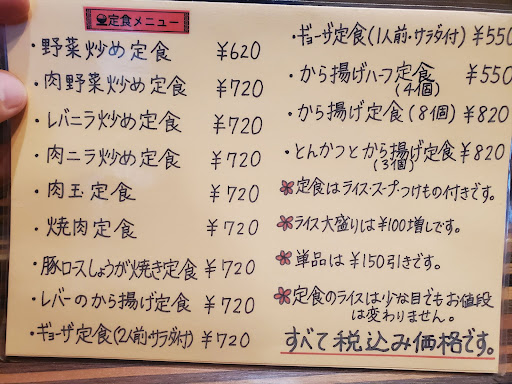 定食メニュー
・野菜炒め定食 ¥620
・肉野菜炒め定食 ¥720
・レバニラ炒め定食 ¥720
・肉ニラ炒め定食 ¥720
・肉玉定食 ¥720
・焼肉定食 ¥720
・豚ロースしょうが焼き定食 ¥720
・レバーのから揚げ定食 ¥720
・ギョーザ定食(2人前・サラダ付) ¥720
・ギョーザ定食(1人前・サラダ付) ¥550
・から揚げハーフ定食 ¥550
(4個)
・から揚げ定食(8個) ¥820
・とんかつとから揚げ定食 ¥820
(3個)
定食はライス・スープ・つけもの付きです。
ライス大盛りは¥100増しです。
単品は¥150引きです。
定食のライスは少な目でもお値段
は変わりません。
すべて税込み価格です。